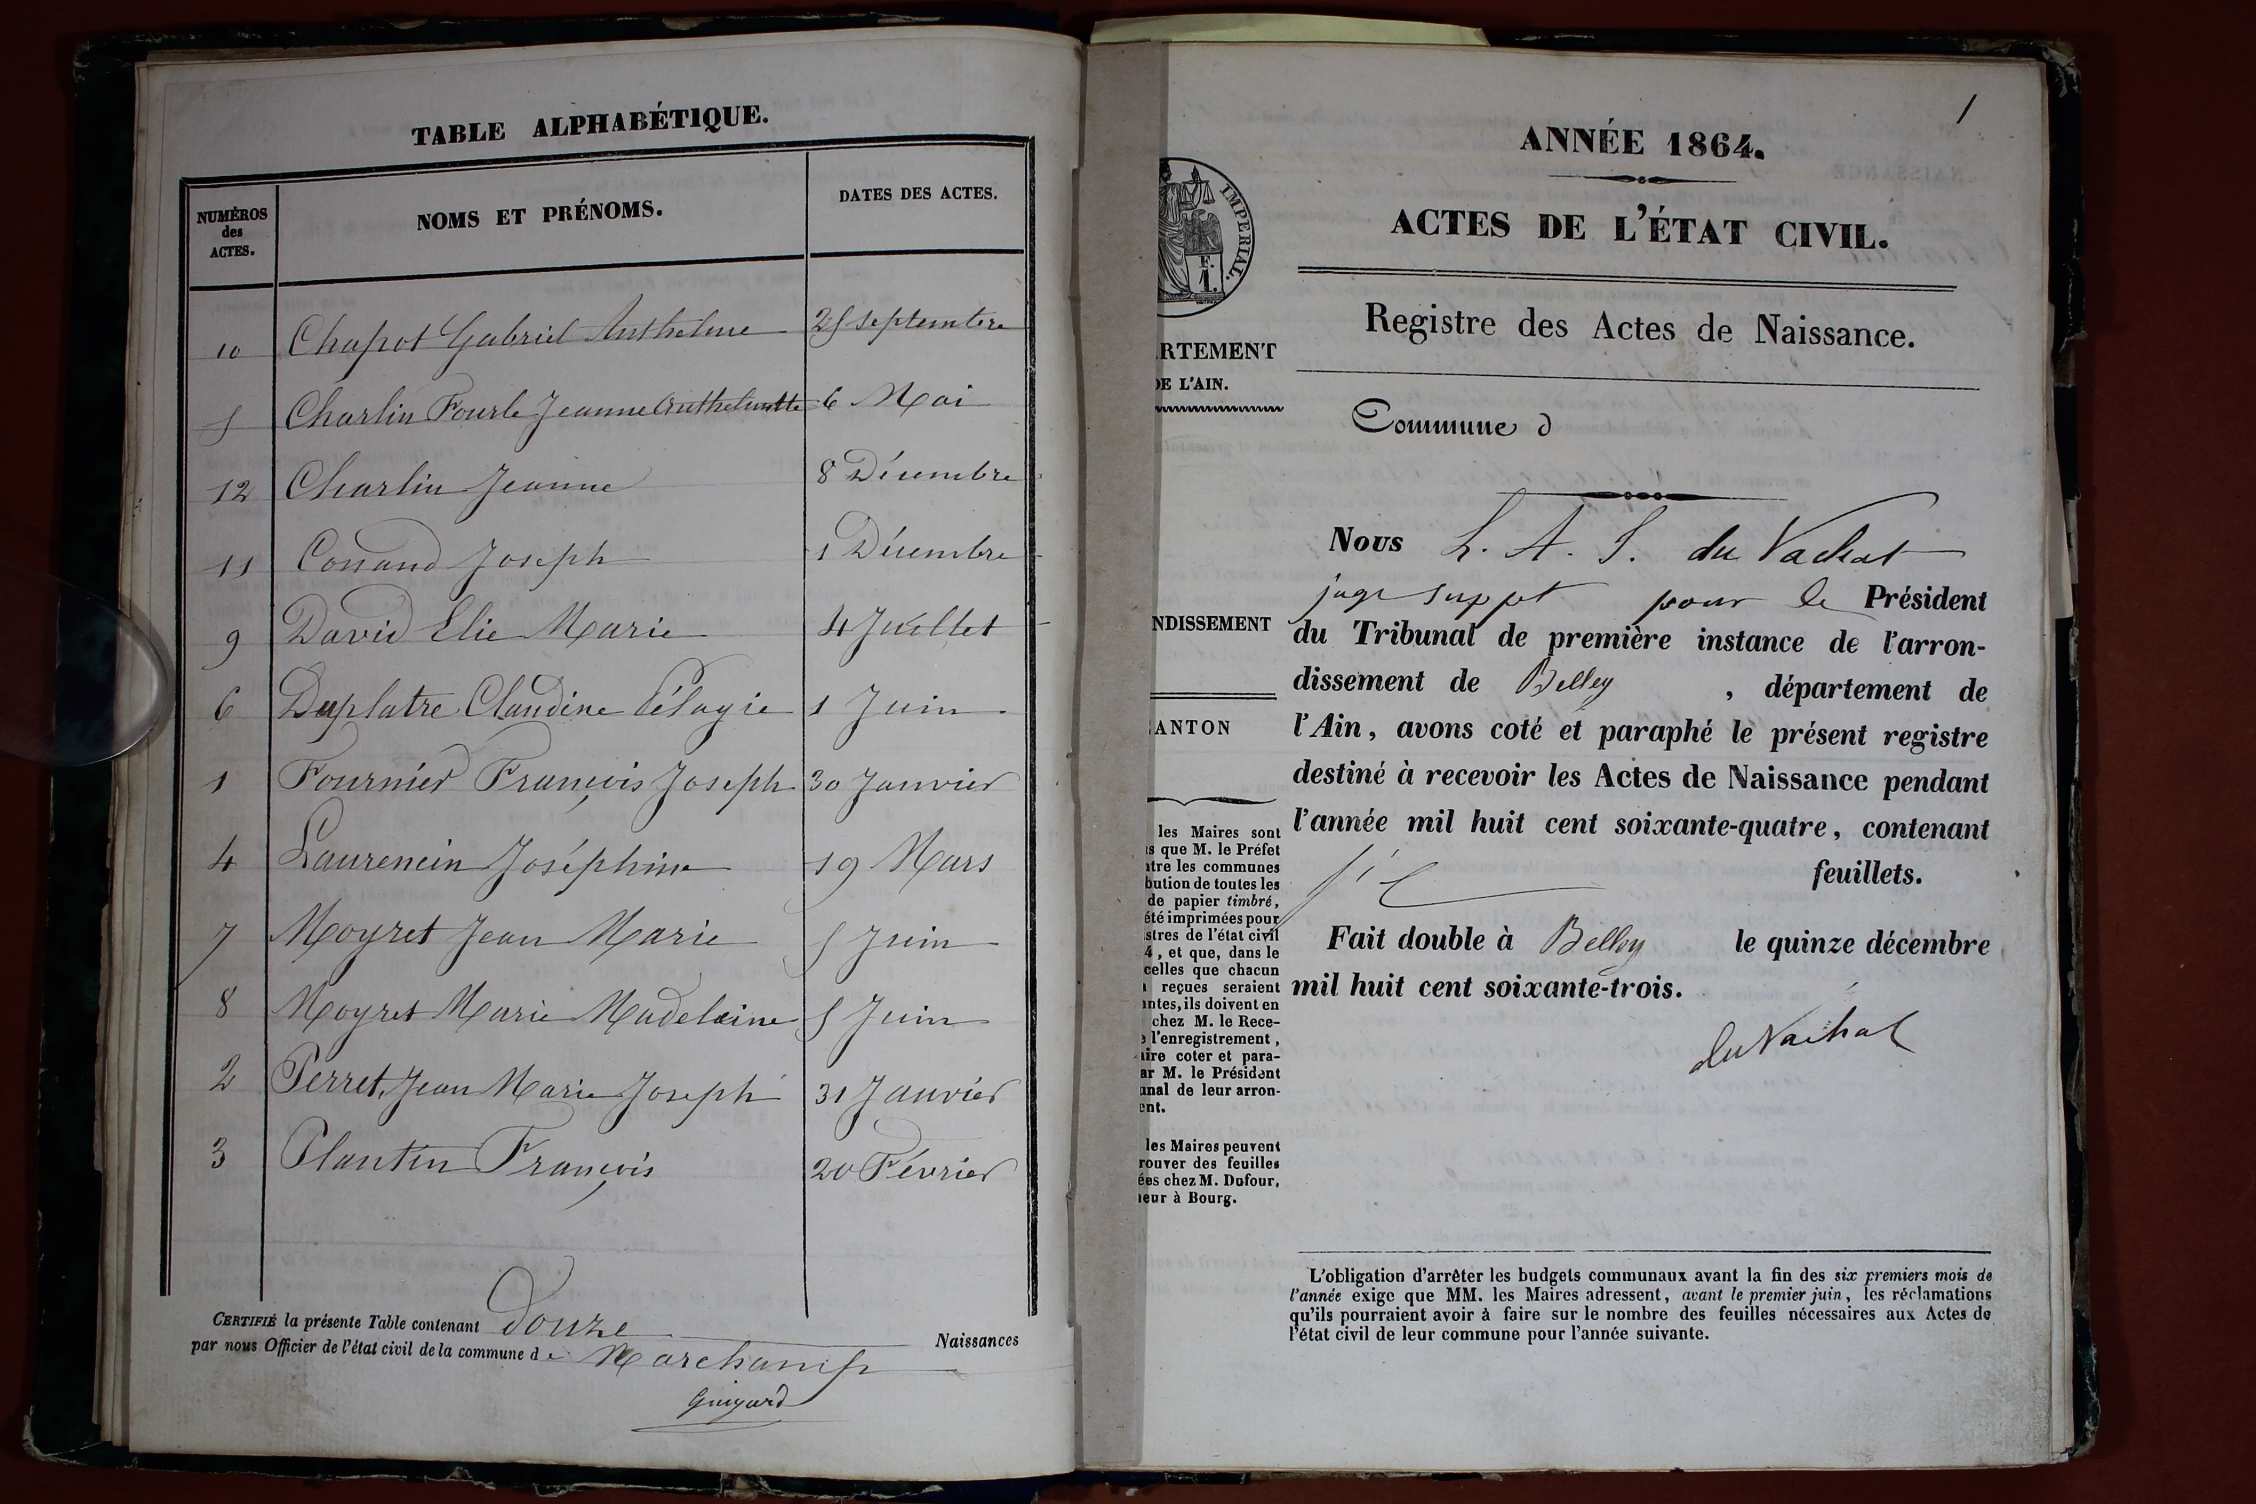 TABLE ALPHABÉTIQUE.
NUMÉROS des ACTES. NOMS ET PRÉNOMS. DATES DES ACTES.
10 Chapot Gabriel Anthelme 25 septembre
5 Charlin Fourle Jeanne Anthelmette 6 Mai
12 Charlin Jeanne 8 Décembre
11 Conand Joseph 1 Décembre
9 David Elie Marie 4 Juillet
6 Duplatre Claudine Pélagie 1 Juin
1 Fournier François Joseph 30 Janvier
4 Laurencin Joséphine 19 Mars
7 Moyret Jean Marie 5 Juin
8 Moyret Marie Madeleine 5 Juin
2 Perret Jean Marie Joseph 31 Janvier
3 Plantin François 20 Février
CERTIFIÉ la présente Table contenant Douze Naissances
par nous Officier de l'état civil de la commune de Marchamp
Guigard
1
ANNÉE 1864.
ACTES DE L'ÉTAT CIVIL.
IMPERIAL.
F.
1.
Registre des Actes de Naissance.
RTEMENT
DE L'AIN.
Commune d
Nous L. A. S. du Vachat
juge suppt pour le Président
du Tribunal de première instance de l'arron-
dissement de Belley , département de
l'Ain, avons coté et paraphé le présent registre
destiné à recevoir les Actes de Naissance pendant
l'année mil huit cent soixante-quatre, contenant
feuillets.
Fait double à Belley le quinze décembre
mil huit cent soixante-trois.
du Vachat
NDISSEMENT
ANTON
les Maires sont
s que M. le Préfet
tre les communes
bution de toutes les
de papier timbré,
été imprimées pour
stres de l'état civil
4, et que, dans le
celles que chacun
reçues seraient
ntes, ils doivent en
chez M. le Rece-
l'enregistrement,
ire coter et para-
ar M. le Président
unal de leur arron-
ent.
les Maires peuvent
rouver des feuilles
ées chez M. Dufour,
eur à Bourg.
L'obligation d'arrêter les budgets communaux avant la fin des six premiers mois de
l'année exige que MM. les Maires adressent, avant le premier juin, les réclamations
qu'ils pourraient avoir à faire sur le nombre des feuilles nécessaires aux Actes de
l'état civil de leur commune pour l'année suivante.